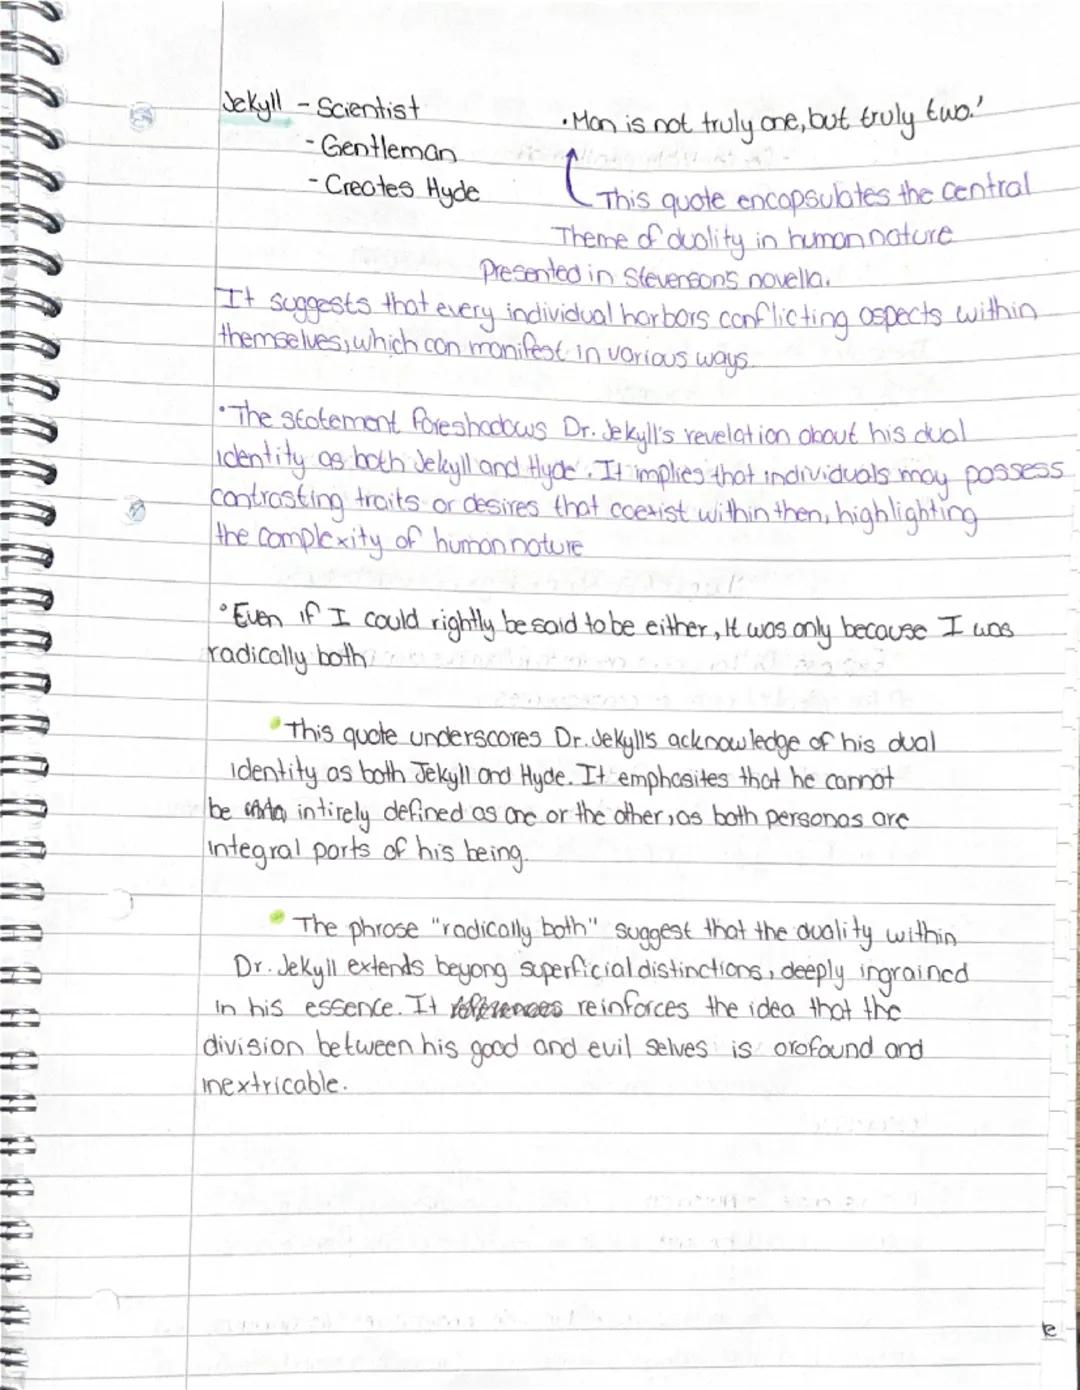 Jekyll - Scientist
- Gentleman
- Creates Hyde
• Man is not truly one, but truly two.'
This quote encapsulates the central
Theme of duality in human nature
Presented in Stevenson's novella.
It suggests that every individual harbors conflicting aspects within
themselves, which can manifest in various ways.
• The statement foreshadows Dr. Jekyll's revelation about his dual
identity as both Jekyll and Hyde. It implies that individuals may possess
contrasting traits or desires that coexist within then, highlighting
the complexity of human nature
• Even if I could rightly be said to be either, It was only because I was
radically both
• This quote underscores Dr. Jekylls acknowledge of his dual
identity as both Jekyll and Hyde. It emphasites that he cannot
be intirely defined as one or the other, as both personas are
integral parts of his being.
• The phrase "radically both" suggest that the duality within
Dr. Jekyll extends beyong superficial distinctions, deeply ingrained
in his essence. It reinforces the idea that the
division between his good and evil selves is orofound and
inextricable.